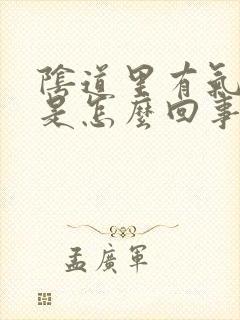 陰道里有氣
是怎麼回事
孟廣軍